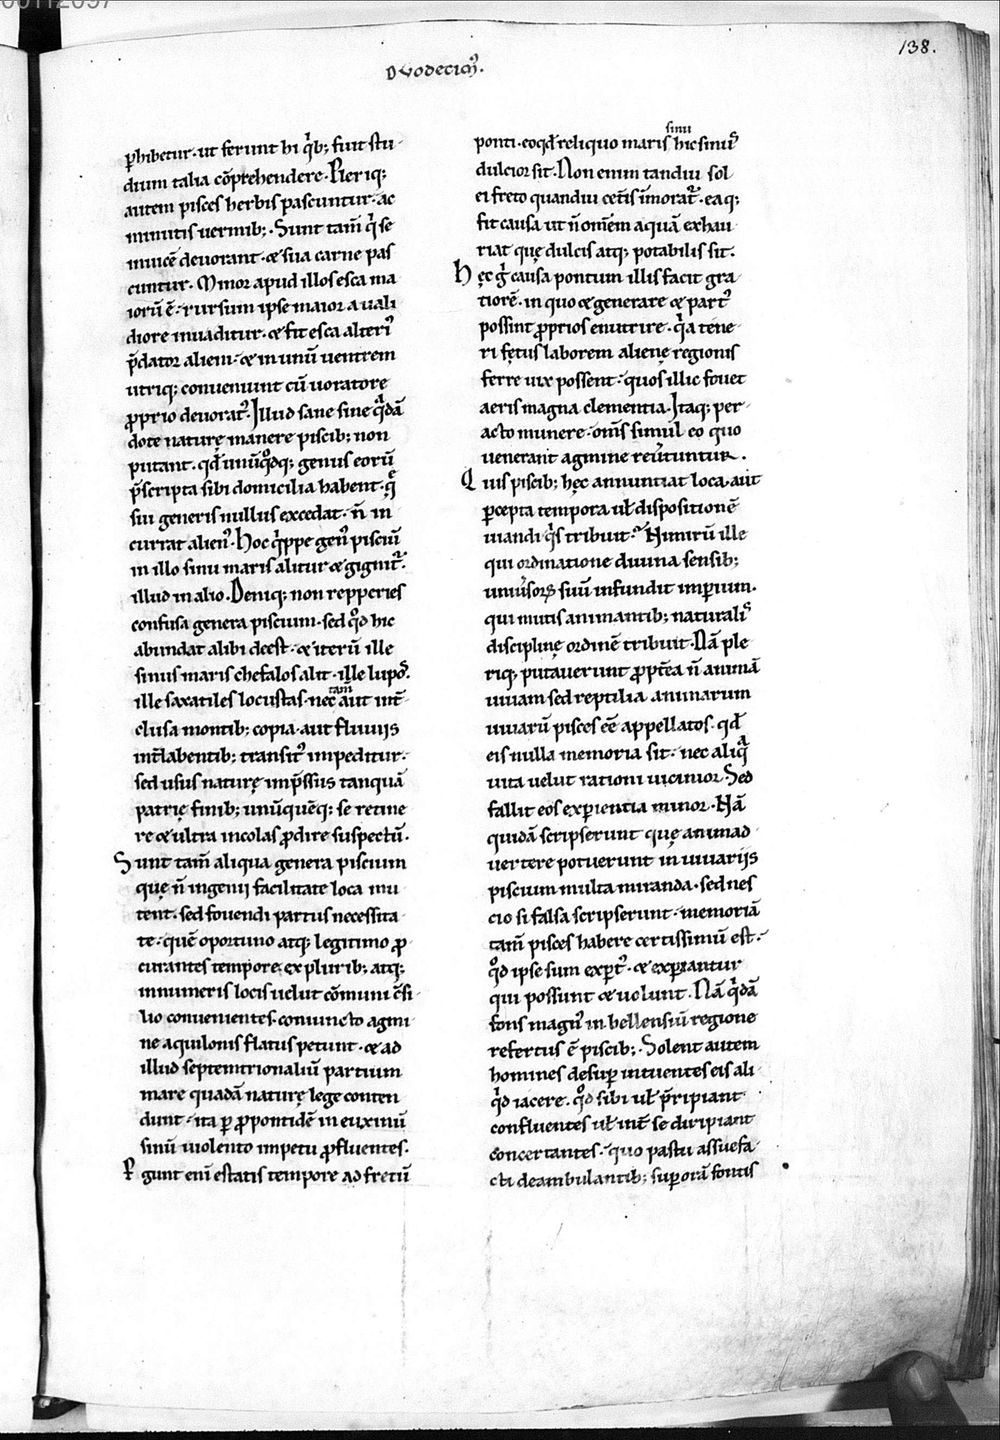 00112097
138.
Dvodecim᷒.
p̱hibetur· ut ferunt hi q̇b; fuit stu-
dium talia cōprehendere· Pleriq;
autem pisces herbis pascuntur· ac
minutis uermib;· Sunt tam̄ q̇ se
inuicē deuorant· & sua carne pas
cuntur· Minor apud illos esca ma
iorū ē· rursum ipse maior a uali
diore inuaditur· & fit esca alteri᷒
p̄dator alieni· & in unū uentrem
utriq; conueniunt cū uoratore
p̱prio deuorat᷒· Illud sane sine q̇dā
dote naturę manere piscib; non
putant· qđ unūq̊dq; genus eorū
p̄scripta sibi domicilia habent· q̄
sui generis nullus excedat· n̄ in
currat alien᷒· Hoc q̇ppe gen᷒ pisciū
in illo sinu maris alitur & gignit᷒·
illud in alio· Deniq; non repperies
confusa genera piscium· sed q̊d hic
abundat alibi deest· & iterū ille
sinus maris chefalos alit· ille lupo᷒·
ille saxatiles locustas· nec tam̄ aut int̄
clusa montib; copia· aut fluuiis
int̄labentib; transit᷒ impeditur·
sed usus naturę imp̄ssus tanquā
patrię finib; unūquēq; se retine
re & ultra incolas p̱dire suspectū·
Sunt tam̄ aliqua genera piscium
quę n̄ ingenii facilitate loca mu
tent· sed fouendi partus necessita
te· quē oportuno atq; legitimo p̱
curantes tempore ex plurib; atq;
innumeris locis uelut cōmuni c̄si-
lio conuenientes· coniuncto agmi
ne aquilonis flatus petunt· & ad
illud septemtrionaliū partium
mare quadā naturę lege conten
dunt· ita p̱ p̱pontidē in euxinū
sinū uiolento impetu p̱fluentes·
Pgunt eni᷒ estatis tempore ad fretū
ponti· eoqđ reliquo maris sinu hic sinu᷒
dulcior sit· Non enim tandiu sol
ei freto quandiu cet̄is īmorat᷒· eaq;
fit causa ut n̄ omēm aquā exhau
riat quę dulcis atq; potabilis sit·
Hęc g̊ causa pontum illis facit gra
tiorē· in quo & generare & part᷒
possint p̱prios enutrire· q̇a tene-
ri fętus laborem alienę regionis
ferre uix possent· quos illic fouet
aeris magna clementia· Itaq; per-
acto munere· om̄s simul eo quo
uenerant agmine reu̇tuntur·
Quis piscib; hęc annuntiat loca· aut
p̱cepta tempora ut dispositionē
uiandi q̇s tribuit? Nimirū ille
qui ordinatione diuina sensib;
uniu̇soꝝ suū infundit imp̱ium·
qui mutis animantib; naturali᷒
disciplinę ordinē tribuit· Nā ple
riq; putauerunt p̱pt̄ea n̄ animā
uiuam sed reptilia animarum
uiuarū pisces eē appellatos· qđ
eis nulla memoria sit· nec aliq̄
uita uelut rationi uicinior· Sed
fallit eos exp̱ientia minor· Nā
quidā scripserunt quę animad-
uertere potuerunt in uiuariis
piscium multa miranda· sed nes
cio si falsa scripserunt· memoriā
tam̄ pisces habere certissimū est·
q̊d ipse sum exp̱t᷒· & exp̱iantur
qui possunt & uolunt· Nā q̇dā
fons magn᷒ in bellensiū regione
refertus ē piscib;· Solent autem
homines desup̱ intuentes eis ali-
q̇d iacere· q̊d sibi ut p̄ripiant
confluentes ut int̄ se diripiant
concertantes· quo pastu assuefa-
cti deambulantib; sup̱ orā fontis